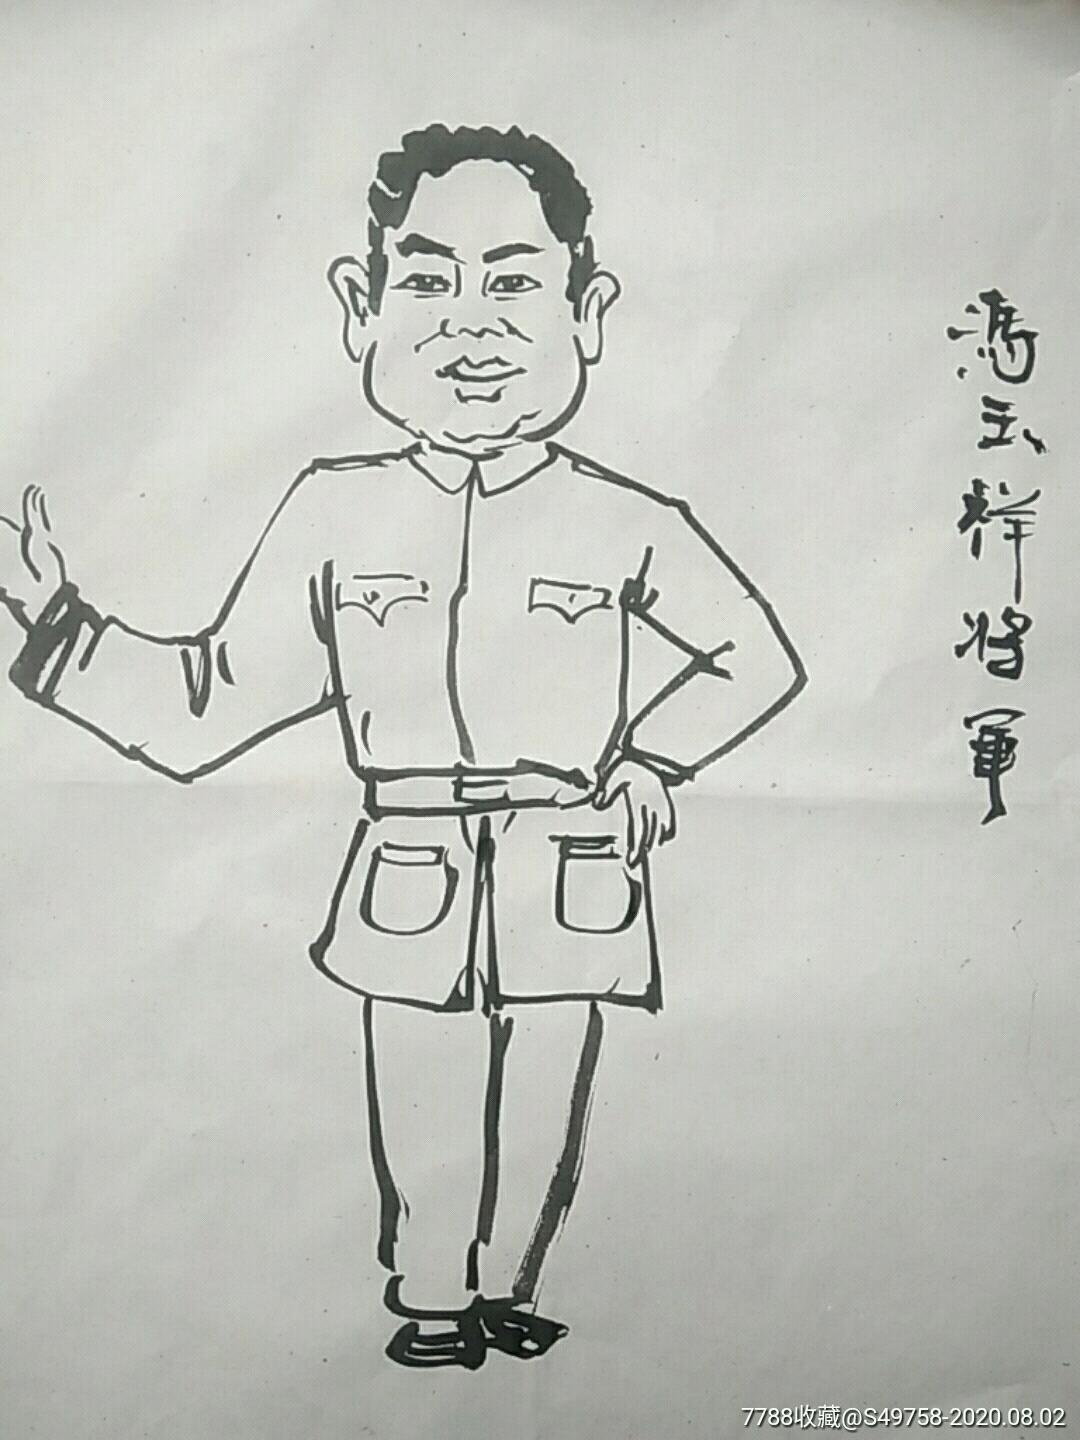 馮玉祥将軍
7788收藏@S49758-2020.08.02